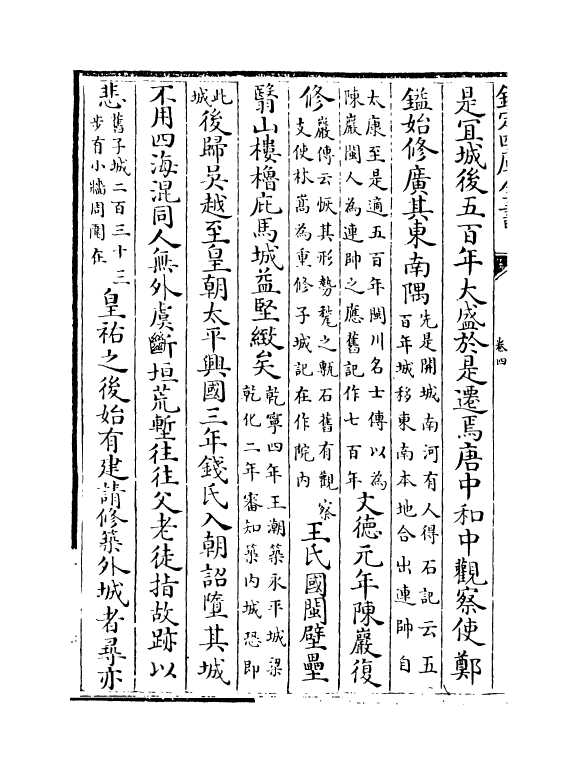 欽定四庫全書
卷四
是宜城後五百年大盛於是遷焉唐中和中觀察使鄭
鎰始修廣其東南隅先是開城南河有人得石記云五百年城移東南本地合出連帥自
太康至是適五百年閩川名士傳以為陳巖閩人為連帥之應舊記作七百年文德元年陳巖復
修巖傳云恢其形勢甃之甎石舊有觀察支使林嵩為重修子城記在作院内王氏國閩壁壘
翳山樓櫓庇馬城益堅緻矣乾寧四年王潮築永平城梁乾化二年審知築内城恐即
此城後歸吳越至皇朝太平興國三年錢氏入朝詔墮其城
不用四海混同人無外虞斷垣荒塹往往父老徒指故跡以
悲舊子城二百三十三步有小牆周圍在皇祐之後始有建請修築外城者尋亦